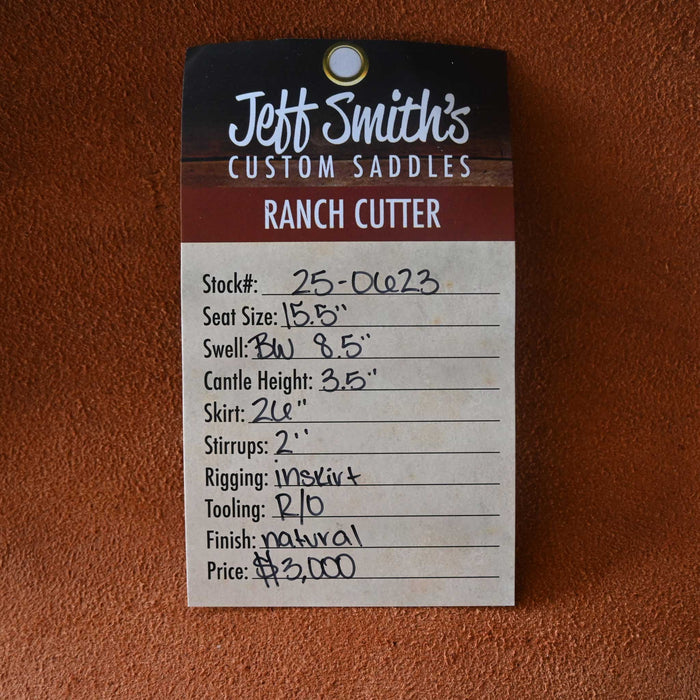 Jeff Smith's
CUSTOM SADDLES
RANCH CUTTER
Stock#: 25-0623
Seat Size: 15.5"
Swell: BW 8.5"
Cantle Height: 3.5"
Skirt: 26"
Stirrups: 2''
Rigging: inskirt
Tooling: R/O
Finish: natural
Price: $3,000